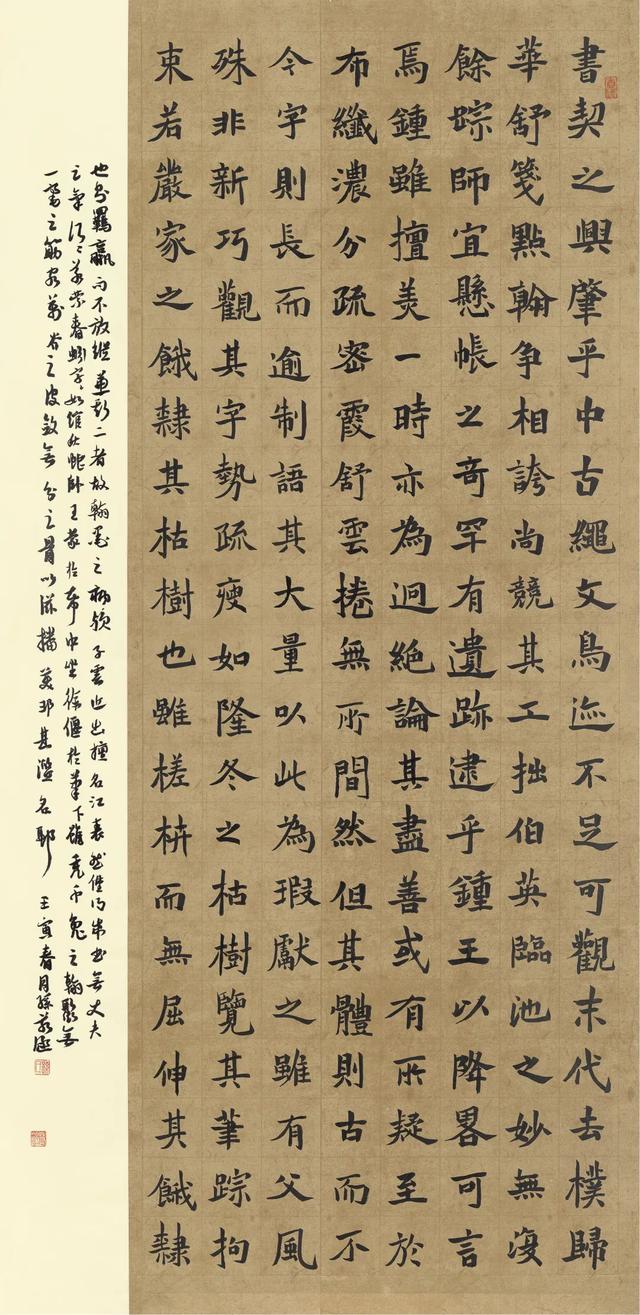 書契之興肇乎中古繩文鳥迹不足可觀末代去樸歸
華舒箋點翰争相誇尚競其工拙伯英臨池之妙無復
餘踪師宜懸帳之奇罕有遺跡逮乎鍾王以降畧可言
焉鍾雖擅美一時亦為迥絶論其盡善或有所疑至於
布纖濃分疏密霞舒雲捲無所間然但其體則古而不
今字則長而逾制語其大量以此為瑕獻之雖有父風
殊非新巧觀其字勢疏瘦如隆冬之枯樹覽其筆踪拘
束若嚴家之餓隸其枯樹也雖槎枿而無屈伸其餓隸
也則羈羸而不放縱兼斯二者故翰墨之病歟子雲近出擅名江表然僅得成書無丈夫
之氣行〻若縈春蚓字〻如綰秋蛇卧王濛於帋中坐徐偃於筆下雖禿千兔之翰聚無
一毫之筋窮萬谷之皮斂無分之骨以茲播美邪其濫名耶 壬寅春月孫